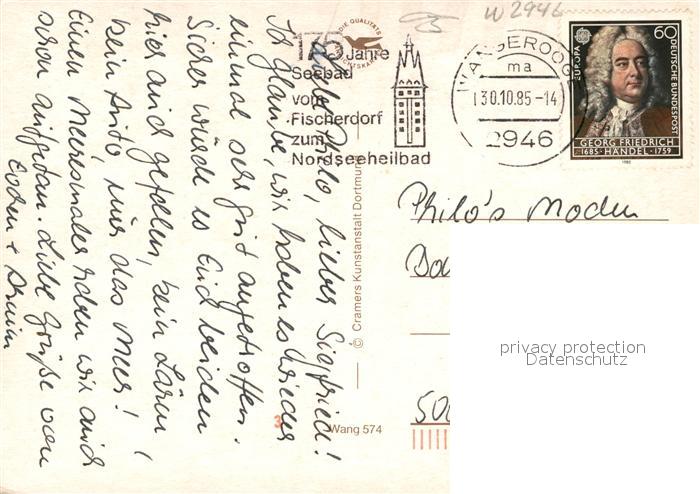 W 2946
DIE QUALITÄTS
175 Jahre
Seebad
vom
Fischerdorf
zum
Nordseeheilbad
WANGEROOGE
ma
30.10.85-14
2946
EUROPA
60
DEUTSCHE BUNDESPOST
GEORG FRIEDRICH
1685 · HÄNDEL · 1759
lieber Siegfried!
Ich glaube, wir haben es wieder
einmal sehr gut angetroffen.
Sicher würde es Euch beiden
hier auch gefallen, kein Lärm,
kein Auto, nur das Meer!
Einen Meeresmaler haben wir auch
schon aufgetan. Liebe Grüße von
© Cramers Kunstanstalt Dortmund
3
Wang 574
Philo's Moden
500
privacy protection
Datenschutz